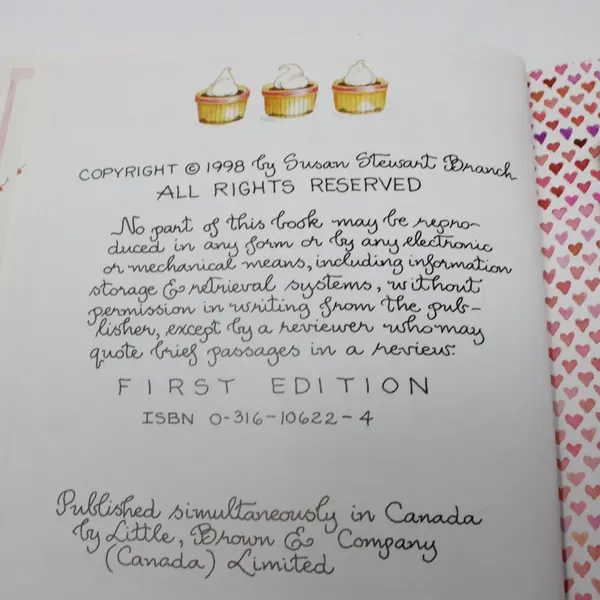 COPYRIGHT © 1998 by Susan Stewart Branch
ALL RIGHTS RESERVED
No part of this book may be repro-
duced in any form or by any electronic
or mechanical means, including information
storage & retrieval systems, without
permission in writing from the pub-
lisher, except by a reviewer who may
quote brief passages in a review.
FIRST EDITION
ISBN 0-316-10622-4
Published simultaneously in Canada
by Little, Brown & Company
(Canada) Limited